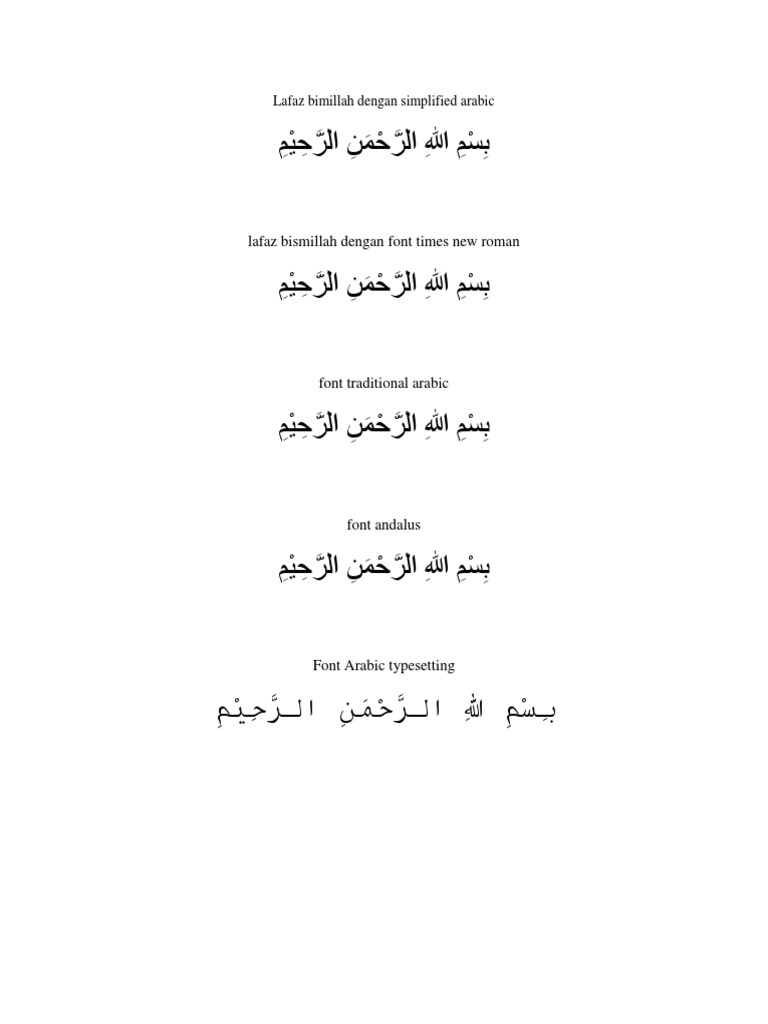 Lafaz bimillah dengan simplified arabic
بِسْمِ اللهِ الرَّحْمَنِ الرَّحِيْمِ
lafaz bismillah dengan font times new roman
بِسْمِ اللهِ الرَّحْمَنِ الرَّحِيْمِ
font traditional arabic
بِسْمِ اللهِ الرَّحْمَنِ الرَّحِيْمِ
font andalus
بِسْمِ اللهِ الرَّحْمَنِ الرَّحِيْمِ
Font Arabic typesetting
بِسْمِ اللهِ الرَّحْمَنِ الرَّحِيْمِ